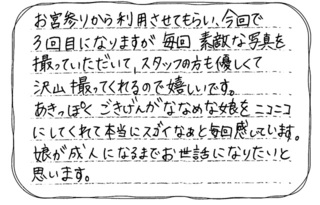 お宮参りから利用させてもらい、今回で
3回目になりますが毎回素敵な写真を
撮っていただいて、スタッフの方も優しくて
沢山撮ってくれるので嬉しいです。
あきっぽくごきげんがななめな娘をニコニコ
にしてくれて本当にスゴイなぁと毎回感じています。
娘が成人になるまでお世話になりたい!と
思います。